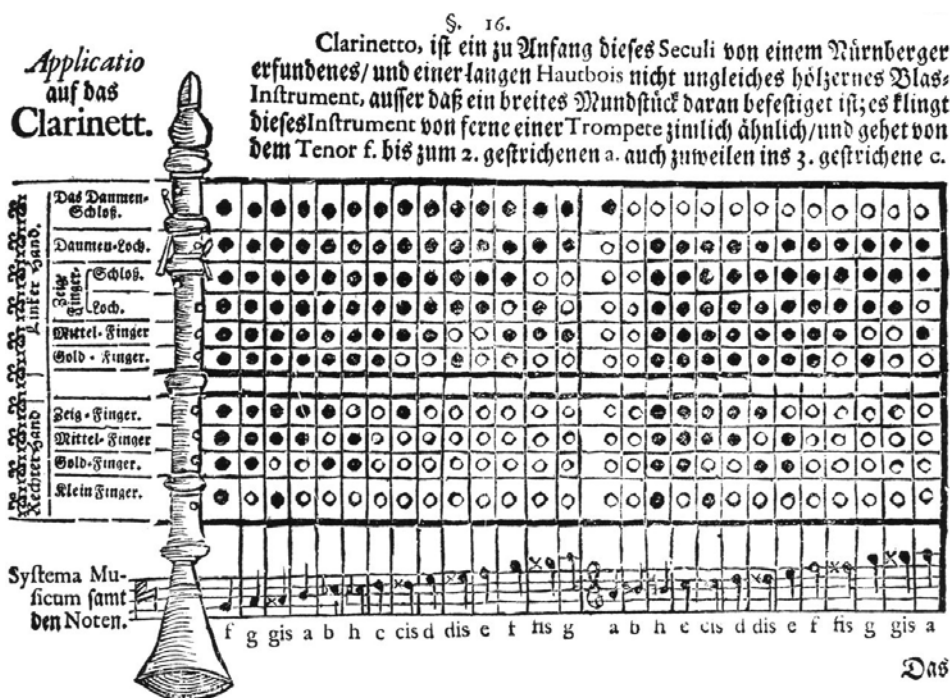 §. 16.
Clarinetto, iſt ein zu Anfang dieſes Seculi von einem Nürnberger
erfundenes/ und einer langen Hautbois nicht ungleiches hölzernes Blas-
Inſtrument, auſſer daß ein breites Mundſtück daran befeſtiget iſt; es klingt
dieſes Inſtrument von ferne einer Trompete zimlich ähnlich/ und gehet von
dem Tenor f. bis zum 2. geſtrichenen a. auch zuweilen ins 3. geſtrichene c.
Applicatio
auf das
Clarinett.
Lincker Hand.
Das Daumen-
Schloß.
Daumen-Loch.
Zeig
Finger
Schloß.
Loch.
Mittel-Finger
Gold-Finger.
Rechter Hand
Zeig-Finger.
Mittel-Finger
Gold-Finger.
Klein Finger.
Syſtema Mu-
ſicum ſamt
den Noten.
f g gis a b h c cis d dis e f fis g a b h c cis d dis e f fis g gis a
Das